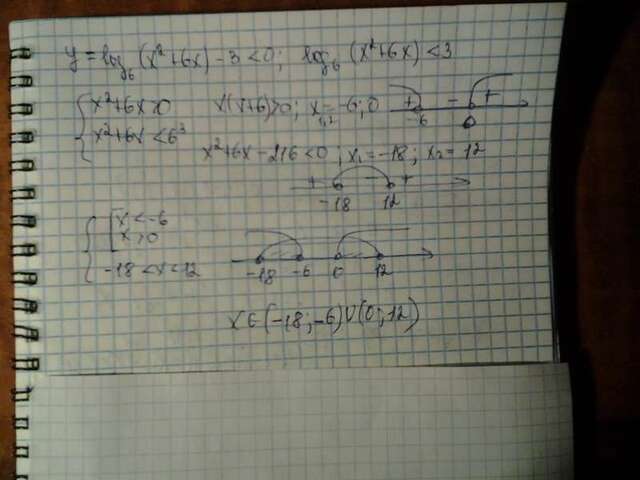 y = log₆(x²+6x) - 3 < 0; log₆(x²+6x) < 3
{ x²+6x>0 x(x+6)>0; x₁,₂ = -6; 0 + - +
-6 0
x²+6x < 6³
x²+6x-216 < 0; x₁ = -18; x₂ = 12
+ - +
-18 12
{ [ x < -6
x > 0
-18 < x < 12 -18 -6 0 12
x ∈ (-18; -6) ∪ (0; 12)